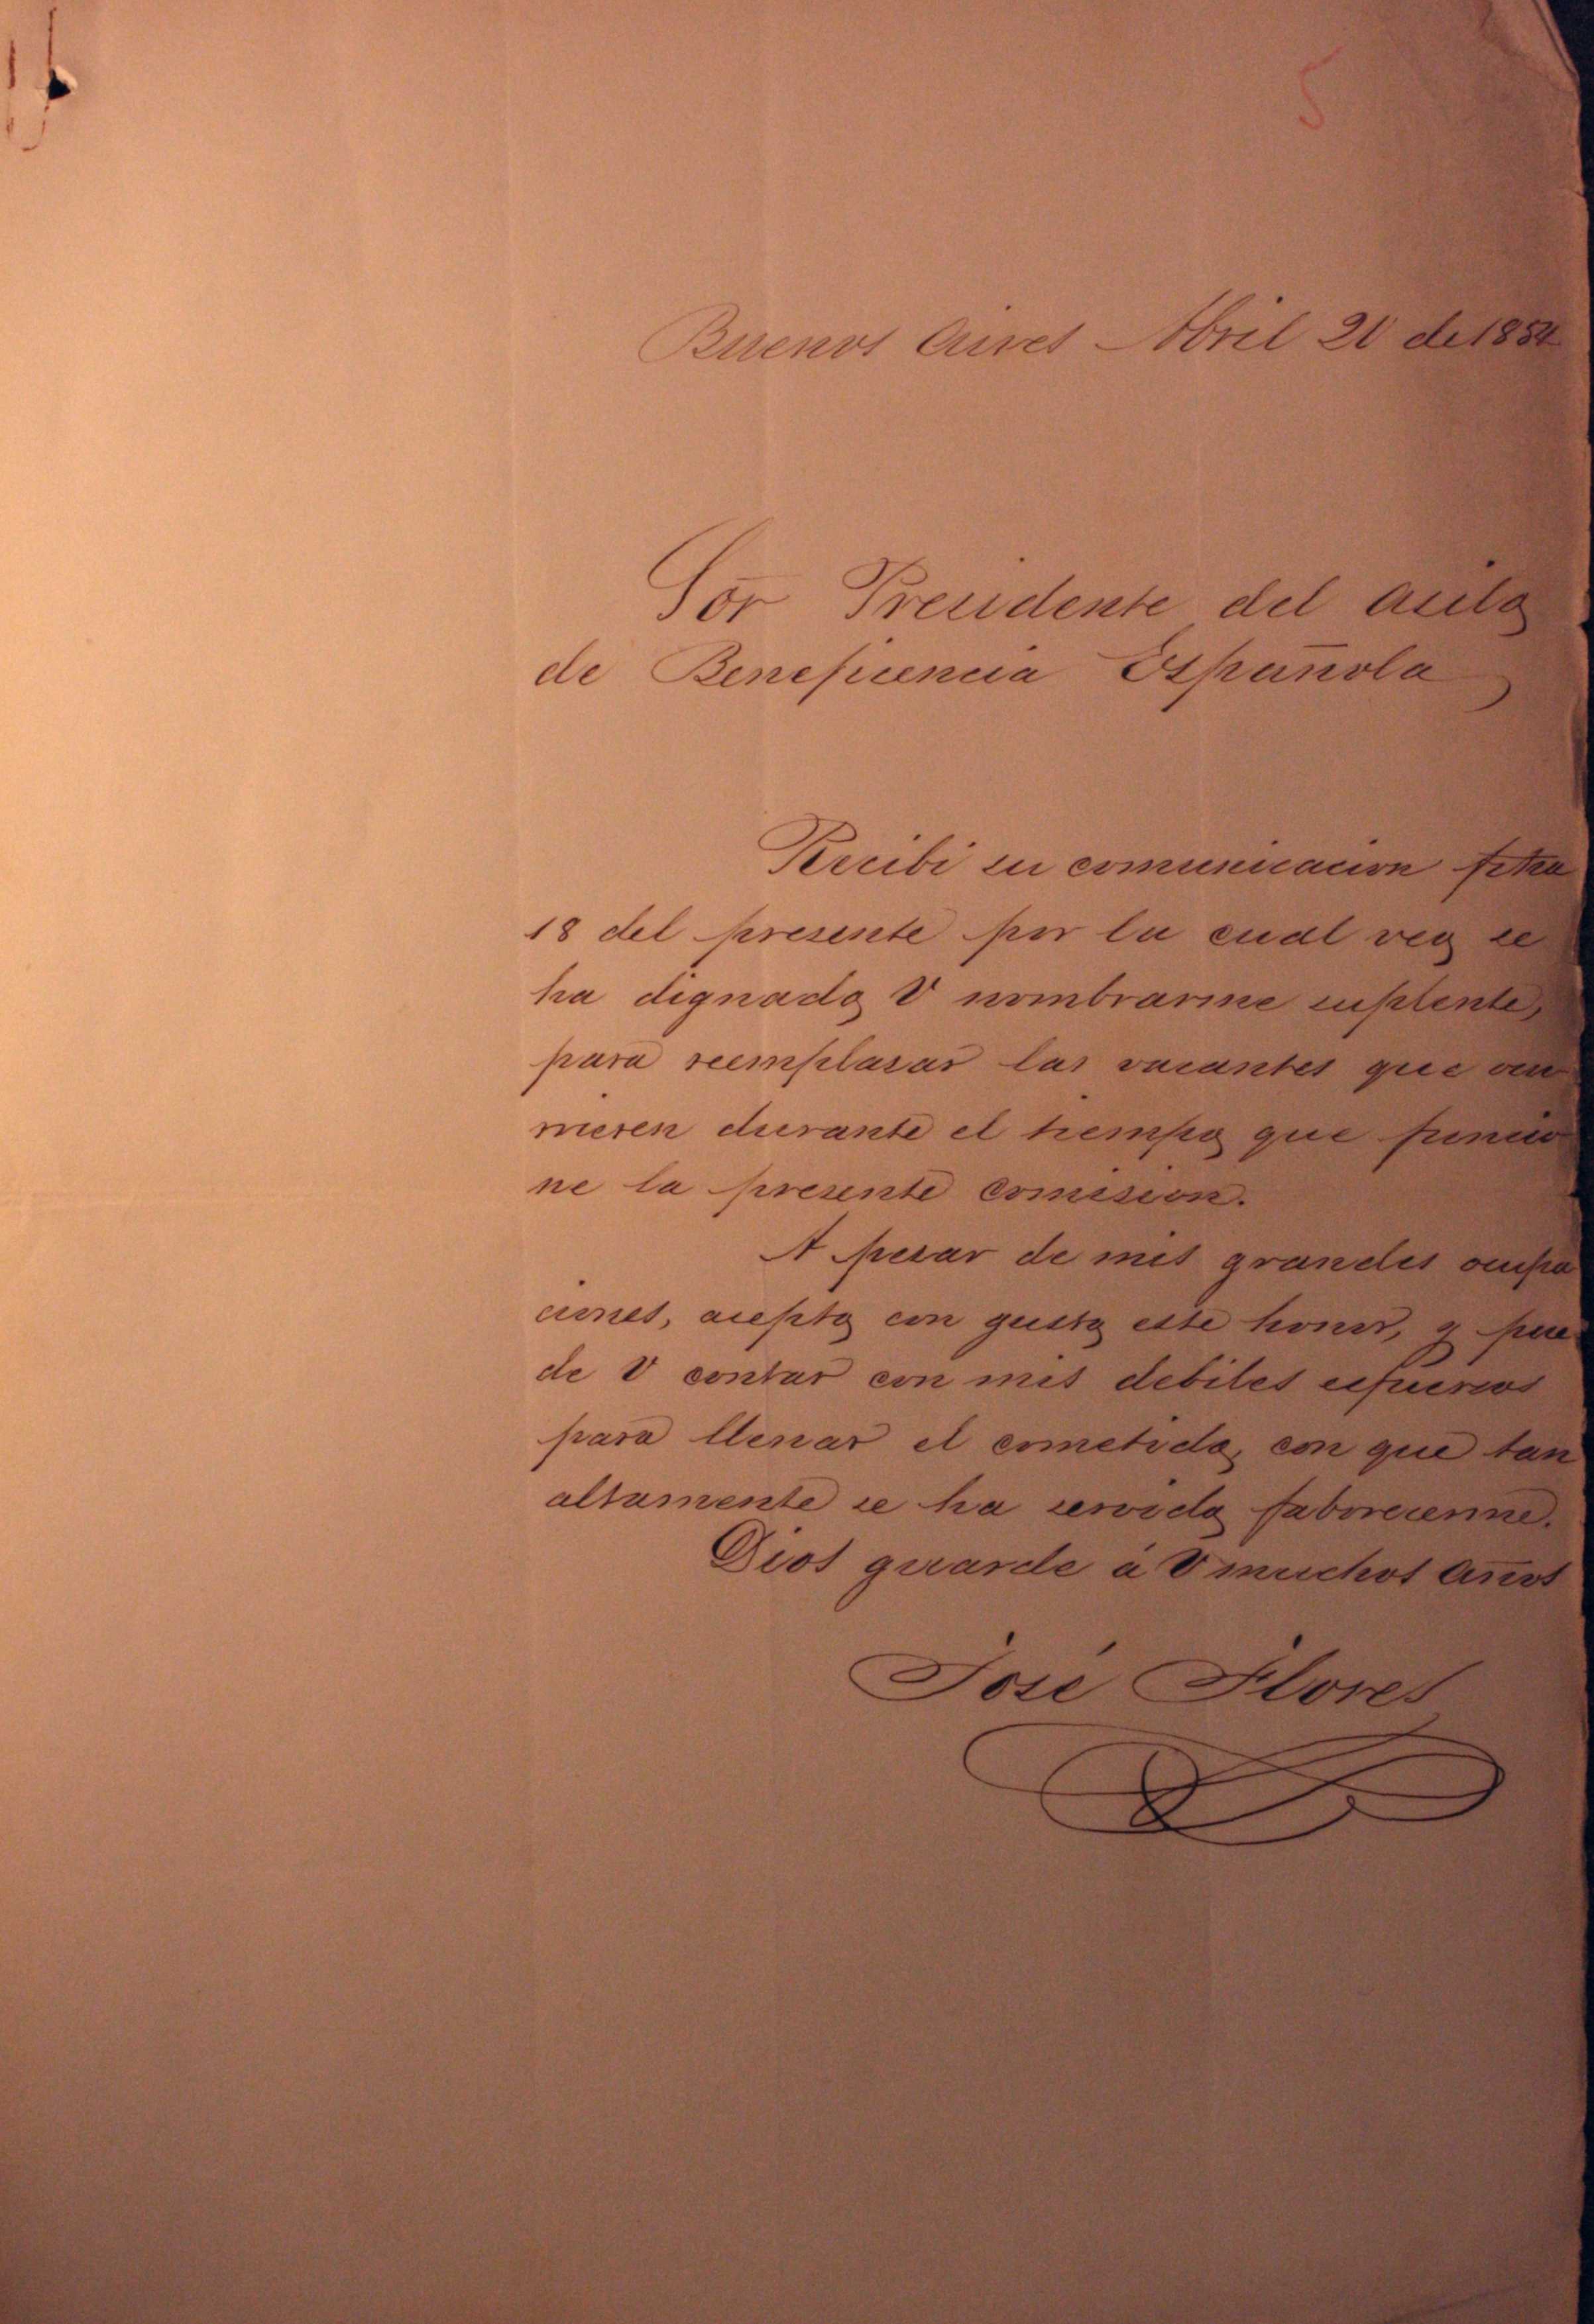 5
Buenos Aires Abril 20 de 1884
Sor Presidente del asilo
de Beneficencia Española
Recibi su comunicacion fcha
18 del presente por la cual veo se
ha dignado V nombrarme suplente,
para reemplasar las vacantes que ocu
rrieren durante el tiempo que funcio
ne la presente comision.
A pesar de mis grandes ocupa
ciones, acepto con gusto este honor, y pue
de V contar con mis debiles esfuersos
para llenar el cometido, con que tan
altamente se ha servido faborecerme.
Dios guarde á V muchos años
José Flores